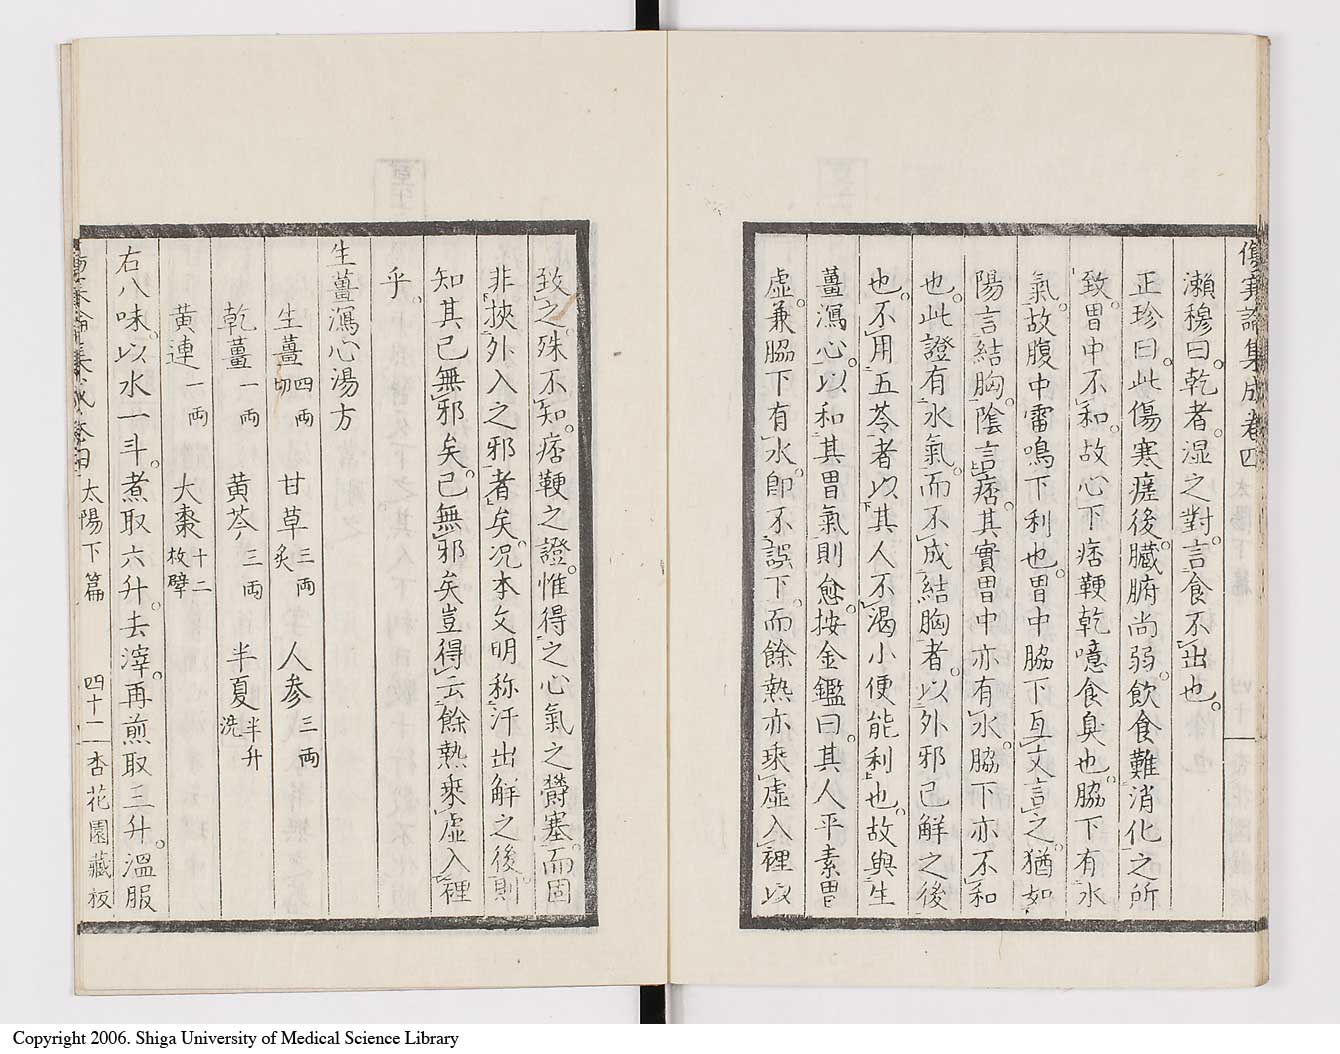 傷寒論集成卷四
瀨穆曰。乾者。湿之對。言食不出也。
正珍曰。此傷寒瘥後。臟腑尚弱。飲食難消化之所
致。胃中不和。故心下痞鞕乾噫食臭也。脇下有水
氣。故腹中雷鳴下利也。胃中脇下互文言之。猶如
陽言結胸。陰言痞。其實胃中亦有水。脇下亦不和
也。此證有水氣。而不成結胸者。以外邪已解之後
也。不用五苓者以其人不渴小便能利也。故與生
薑瀉心。以和其胃氣則愈。按金鑑曰。其人平素胃
虛。兼脇下有水。即不誤下。而餘熱亦乘虛入裡以
致之。殊不知。痞鞕之證。惟得之心氣之欝塞。而固
非挾外入之邪者矣。况本文明称汗出解之後。則
知其已無邪矣。已無邪矣豈得云餘熱乘虛入裡
乎。
生薑瀉心湯方
生薑四両切 甘草三両炙 人参三両
乾薑一両 黄芩三両 半夏半升洗
黄連一両 大棗十二枚擘
右八味。以水一斗。煮取六升。去滓。再煎取三升。温服
太陽下篇 四十二 杏花園藏板
Copyright 2006. Shiga University of Medical Science Library